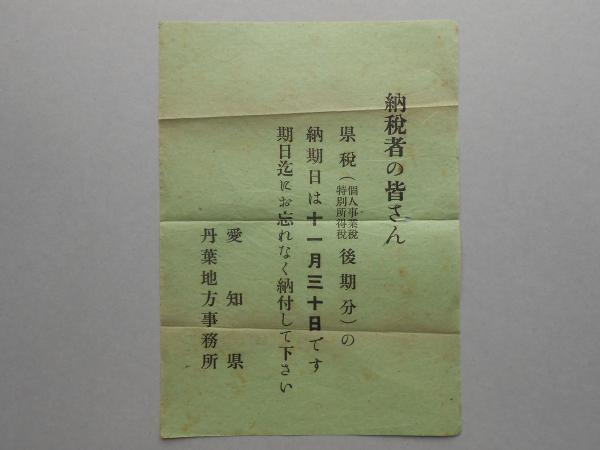 納税者の皆さん
県税(個人事業税
特別所得税 後期分)の
納期日は十一月三十日です
期日迄にお忘れなく納付して下さい
愛知県
丹葉地方事務所